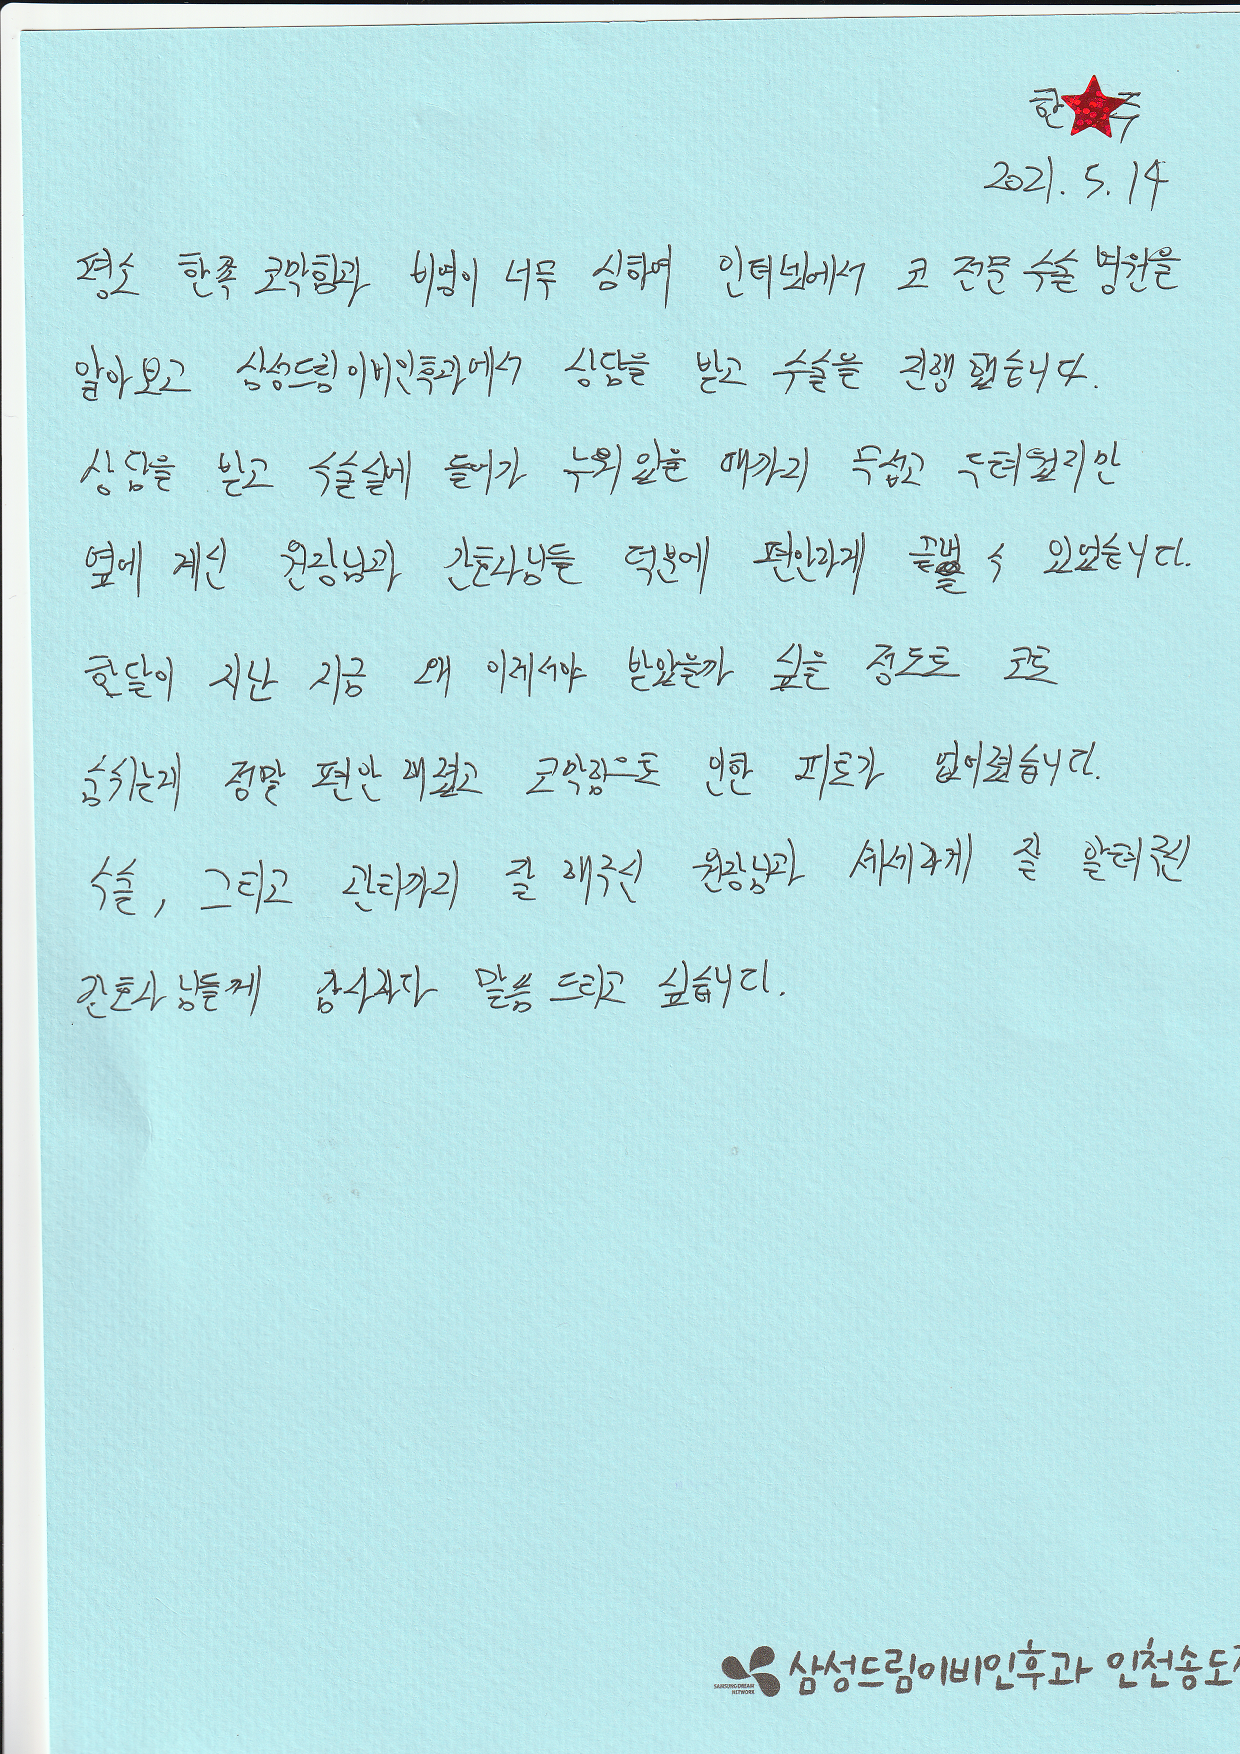 한 주
2021. 5. 14
평소 한쪽 코막힘과 비염이 너무 심하여 인터넷에서 코 전문 수술 병원을
알아보고 삼성드림이비인후과에서 상담을 받고 수술을 진행 했습니다.
상담을 받고 수술실에 들어가 누워 있을 때까지 무섭고 두려웠지만
옆에 계신 원장님과 간호사님들 덕분에 편안하게 끝낼 수 있었습니다.
한달이 지난 지금 왜 이제서야 받았을까 싶을 정도로 코로
숨쉬는게 정말 편안 해졌고 코막힘으로 인한 피로가 없어졌습니다.
수술, 그리고 관리까지 잘 해주신 원장님과 세세하게 잘 알려주신
간호사님들께 감사하다 말씀 드리고 싶습니다.
SAMSUNG DREAM NETWORK
삼성드림이비인후과 인천송도